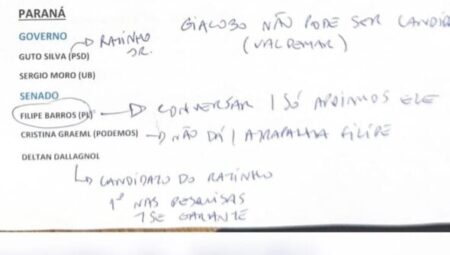 PARANÁ
GIACOBO NÃO PODE SER CANDIDA
(VALDEMAR)
GOVERNO
GUTO SILVA (PSD) → RATINHO JR.
SERGIO MORO (UB)
SENADO
FILIPE BARROS (PL) → CONVERSAR | SÓ APOIAMOS ELE
CRISTINA GRAEML (PODEMOS) → NÃO DÁ | ATRAPALHA FILIPE
DELTAN DALLAGNOL
↳ CANDIDATO DO RATINHO
1º NAS PESQUISAS
SE GARANTE